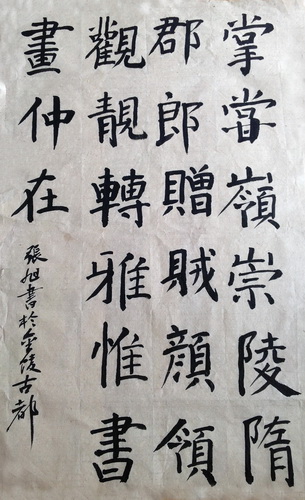 掌當嶺崇陵隋
郡郎贈賊顔領
觀靚轉雅惟書
畫仲在
張旭書於金陵古都